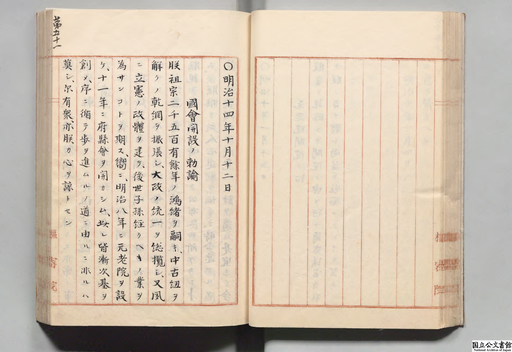 〇明治十四年十月十二日
國會開設ノ勅諭
朕祖宗二千五百有餘年ノ鴻緒ヲ嗣キ中古紐ヲ
解クノ乾綱ヲ振張シ大政ノ統一ヲ總攬シ又夙
ニ立憲ノ政體ヲ建テ後世子孫繼クヘキノ業ヲ
為サンコトヲ期ス嚮ニ明治八年ニ元老院ヲ設
ケ十一年ニ府縣會ヲ開カシム此レ皆漸次基ヲ
創メ序ニ循テ歩ヲ進ムルノ道ニ由ルニ非ルハ
莫シ尓有衆亦朕カ心ヲ諒トセン
国立公文書館
National Archives of Japan